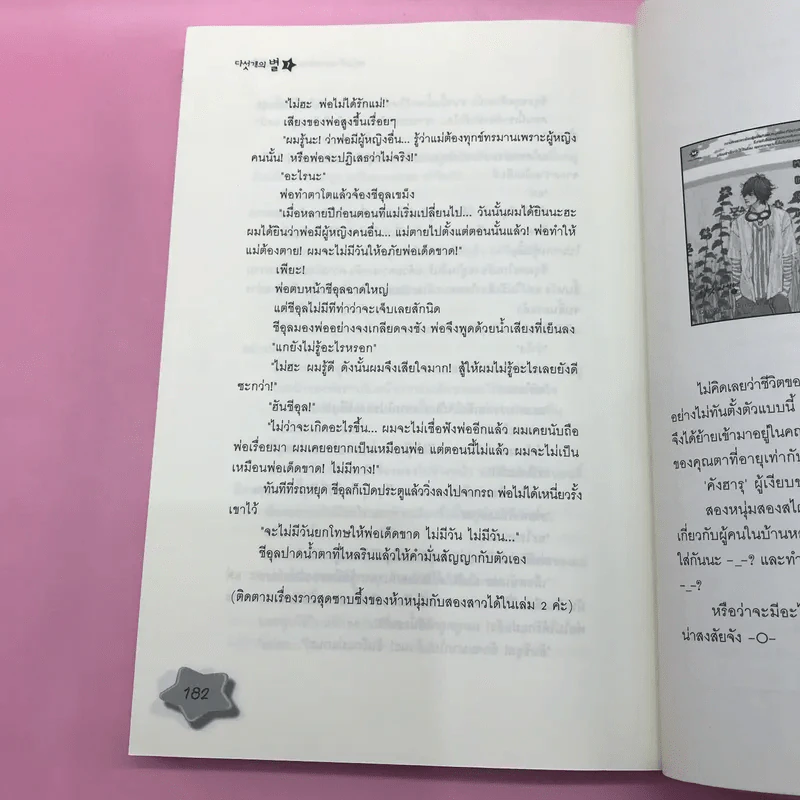 다섯개의 별 1
"ไม่ฮะ พ่อไม่ได้รักแม่!"
เสียงของพ่อสูงขึ้นเรื่อยๆ
"ผมรู้นะ! ว่าพ่อมีผู้หญิงอื่น... รู้ว่าแม่ต้องทุกข์ทรมานเพราะผู้หญิง
คนนั้น! หรือพ่อจะปฏิเสธว่าไม่จริง!"
"อะไรนะ"
พ่อทำตาโตแล้วจ้องชีอุลเขม็ง
"เมื่อหลายปีก่อนตอนที่แม่เริ่มเปลี่ยนไป... วันนั้นผมได้ยินนะฮะ
ผมได้ยินว่าพ่อมีผู้หญิงคนอื่น... แม่ตายไปตั้งแต่ตอนนั้นแล้ว! พ่อทำให้
แม่ต้องตาย! ผมจะไม่มีวันให้อภัยพ่อเด็ดขาด!"
เพียะ!
พ่อตบหน้าชีอุลฉาดใหญ่
แต่ชีอุลไม่มีทีท่าว่าจะเจ็บเลยสักนิด
ชีอุลมองพ่ออย่างจงเกลียดจงชัง พ่อจึงพูดด้วยน้ำเสียงที่เย็นลง
"แกยังไม่รู้อะไรหรอก"
"ไม่ฮะ ผมรู้ดี ดังนั้นผมจึงเสียใจมาก! สู้ให้ผมไม่รู้อะไรเลยยังดี
ซะกว่า!"
"ฮันชีอุล!"
"ไม่ว่าจะเกิดอะไรขึ้น... ผมจะไม่เชื่อฟังพ่ออีกแล้ว ผมเคยนับถือ
พ่อเรื่อยมา ผมเคยอยากเป็นเหมือนพ่อ แต่ตอนนี้ไม่แล้ว ผมจะไม่เป็น
เหมือนพ่อเด็ดขาด! ไม่มีทาง!"
ทันทีที่รถหยุด ชีอุลก็เปิดประตูแล้ววิ่งลงไปจากรถ พ่อไม่ได้เหนี่ยวรั้ง
เขาไว้
"จะไม่มีวันยกโทษให้พ่อเด็ดขาด ไม่มีวัน ไม่มีวัน..."
ชีอุลปาดน้ำตาที่ไหลรินแล้วให้คำมั่นสัญญากับตัวเอง
(ติดตามเรื่องราวสุดซาบซึ้งของห้าหนุ่มกับสองสาวได้ในเล่ม 2 ค่ะ)
182
ไม่คิดเลยว่าชีวิตขอ
อย่างไม่ทันตั้งตัวแบบนี้
จึงได้ย้ายเข้ามาอยู่ในคฤ
ของคุณตาที่อายุเท่ากับ
'คังฮารุ' ผู้เงียบข
สองหนุ่มสองสไต
เกี่ยวกับผู้คนในบ้านห
ใส่กันนะ -_-? และทำ
-_-?
หรือว่าจะมีอะไ
น่าสงสัยจัง -O-